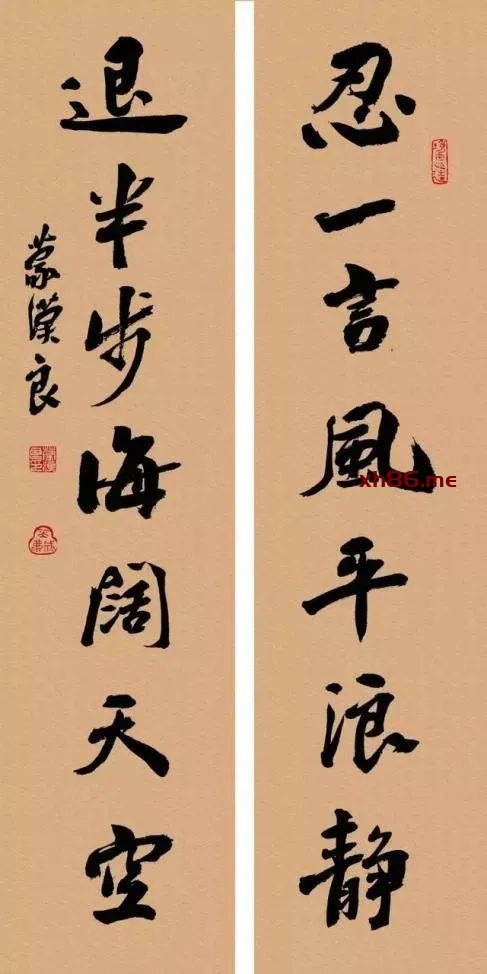 忍一言風平浪静
退半步海阔天空
蒙漢良
xh86.me